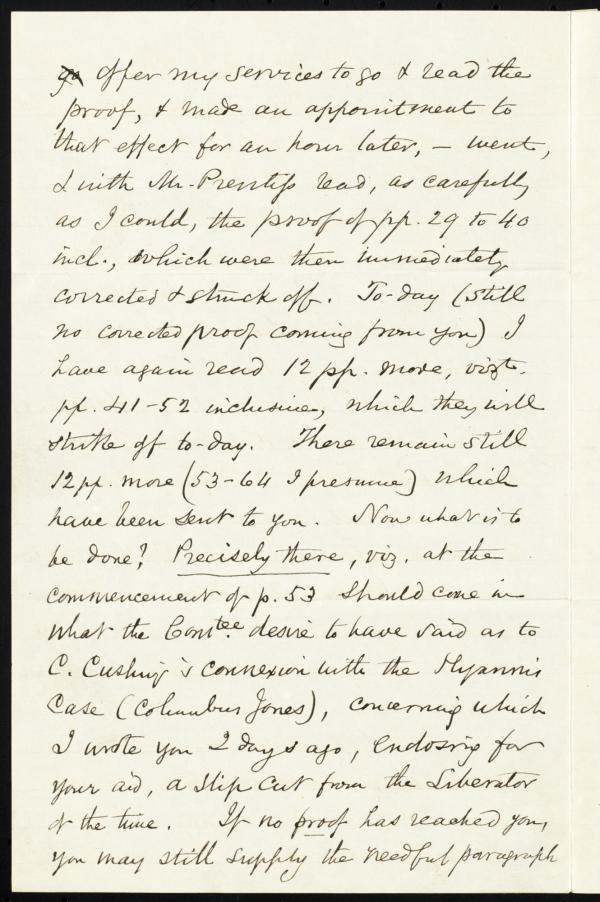 go offer my services to go & read the
proof, & made an appointment to
that effect for an hour later, – went,
& with Mr. Prentiss read, as carefully
as I could, the proof of pp. 29 to 40
incl., which were then immediately
corrected & struck off. To-day (still
no corrected proof coming from you) I
have again read 12 pp. more, vizt.
pp. 41–52 inclusive, which they will
strike off to-day. There remain still
12 pp. more (53–64 I presume) which
have been sent to you. Now what is to
be done? Precisely there, viz. at the
commencement of p. 53 should come in
what the Comtee. desire to have said as to
C. Cushing's connexion with the Hyannis
Case (Columbus Jones), concerning which
I wrote you 2 days ago, enclosing for
your aid, a slip cut from the Liberator
of the time. If no proof has reached you,
you may still supply the needful paragraph